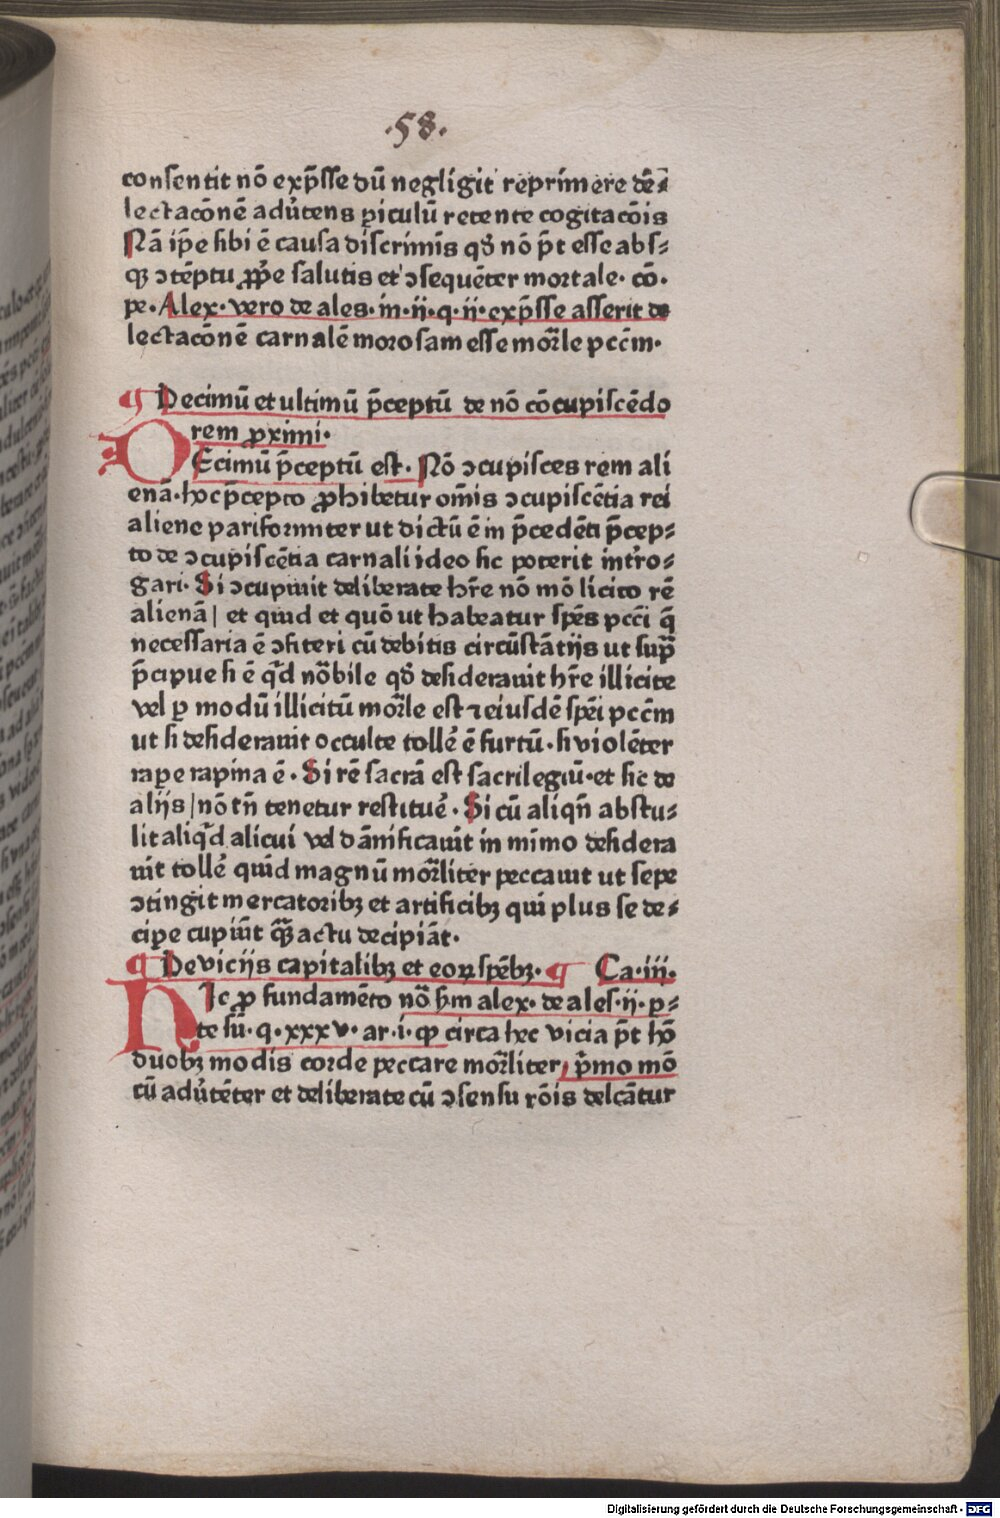 ·58·
consentit nō exp̄sse dū negligit reprimere de⸗
lectacōnē adv̄tens ꝑiculū retente cogitacōis
Nā ip̄e sibi ē causa discriminis qd̄ nō pt̄ esse abs⸗
qꝫ ↄtēptu ꝓp̄e salutis et ↄsequēter mortale· cō·
pe· Alex· vero de ales· in· ij· q· ij· exp̄sse asserit de
lectacōnē carnalē morosam esse morl̄e pccm̄·
¶ Decimū et ultimū p̄ceptū de nō cōcupiscēdo
rem ꝓximi·
DEcimū p̄ceptū est· Nō ↄcupisces rem ali
enā· hoc p̄cepto ꝓhibetur om̄is ↄcupiscētia rei
aliene pariformiter ut dictū ē in p̄cedēti p̄cep⸗
to de ↄcupiscētia carnali ideo sic poterit intr̄o⸗
gari· Si ↄcupiuit deliberate hr̄e nō mō licito rē
alienā | et quid et quō ut habeatur spēs pccī q̄
necessaria ē ↄfiteri cū debitis circūstātijs ut supͣ
p̄cipue si ē qͥd nōbile qd̄ desiderauit hr̄e illicite
vel ꝑ modū illicitū morl̄e est ⁊ eiusdē spēi pccm̄
ut si desiderauit occulte tollē ē furtū· si violēter
rapere rapina ē· Si rē sacrā est sacrilegiū· et sic de
alijs | nō tn̄ tenetur restituē· Si cū aliqn̄ abstu⸗
lit aliqͥd alicui vel dānificauit in minimo desidera
uit tollē quid magnū morl̄iter peccauit ut sepe
ↄtingit mercatoribꝫ et artificibꝫ qui plus se de⸗
cipe cupiūt qͣꝫ actu decipiāt·
¶ De vicijs capitalibꝫ et eoꝝ spēbꝫ· ¶ Ca· iij·
HIc ꝓ fundamēto nō sm̄ alex· de ales· ij· p⸗
te sū· q· xxxv· ar· i· ꝙ circa hec vicia pt̄ hō
duobꝫ modis corde peccare morl̄iter, p̄mo mō
cū adv̄tēter et deliberate cū ↄsensu rōis delcātur
Digitalisierung gefördert durch die Deutsche Forschungsgemeinschaft - DFG